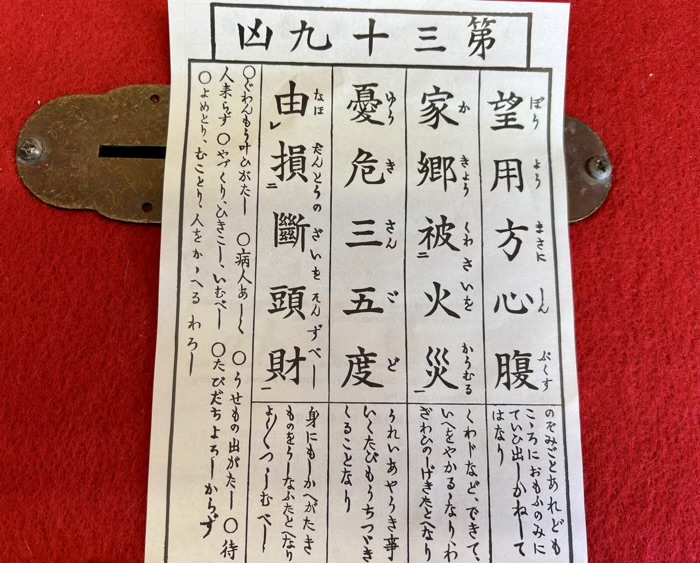 第三十九凶
望用方心腹
ぼう よう まさに しん ぷくす
のぞみごとあれども
こゝろにおもふのみに
ていひ出しかねして
はなり
家郷被二火災一
か きょう くわさいを かうむる
くわドなど、できて、
いへをやかるゝなり、わ
ざわひのしげきたとへなり
憂危三五度
ゆう き さん ご ど
うれいあやうき事
いくたびもうちつゞき
くることなり
由レ損二斷頭財一
なほ だんとうの ざいを そんずべし
身にもかへがたき
ものをうしなふたとへなり
つゝしむべし
○ぐわんもう叶ひがたし ○病人あしし ○うせもの出がたし ○待
人来らず ○やづくり、ひきこし、いむべし ○たびだちよろしからず
○よめとり、むことり、人をかゝへる わろし